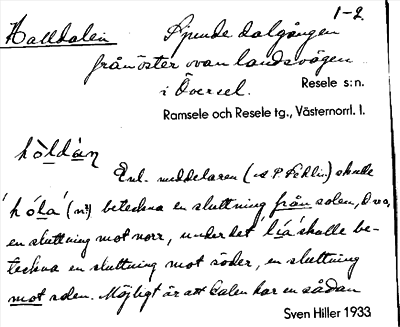 1-2.
Halldalen Sjunde dalgången
från öster ovan landsvägen
i Översel. Resele s:n.
Ramsele och Resele tg., Västernorrl. l.
hòldàn
Enl. meddelaren ( P. ) skulle
'hóla' (n) beteckna en sluttning från solen, d.v.s,
en sluttning mot norr, under det 'lía' skulle be-
teckna en sluttning mot söder, en sluttning
mot solen. Möjligt är att dalen har en sådan
Sven Hiller 1933